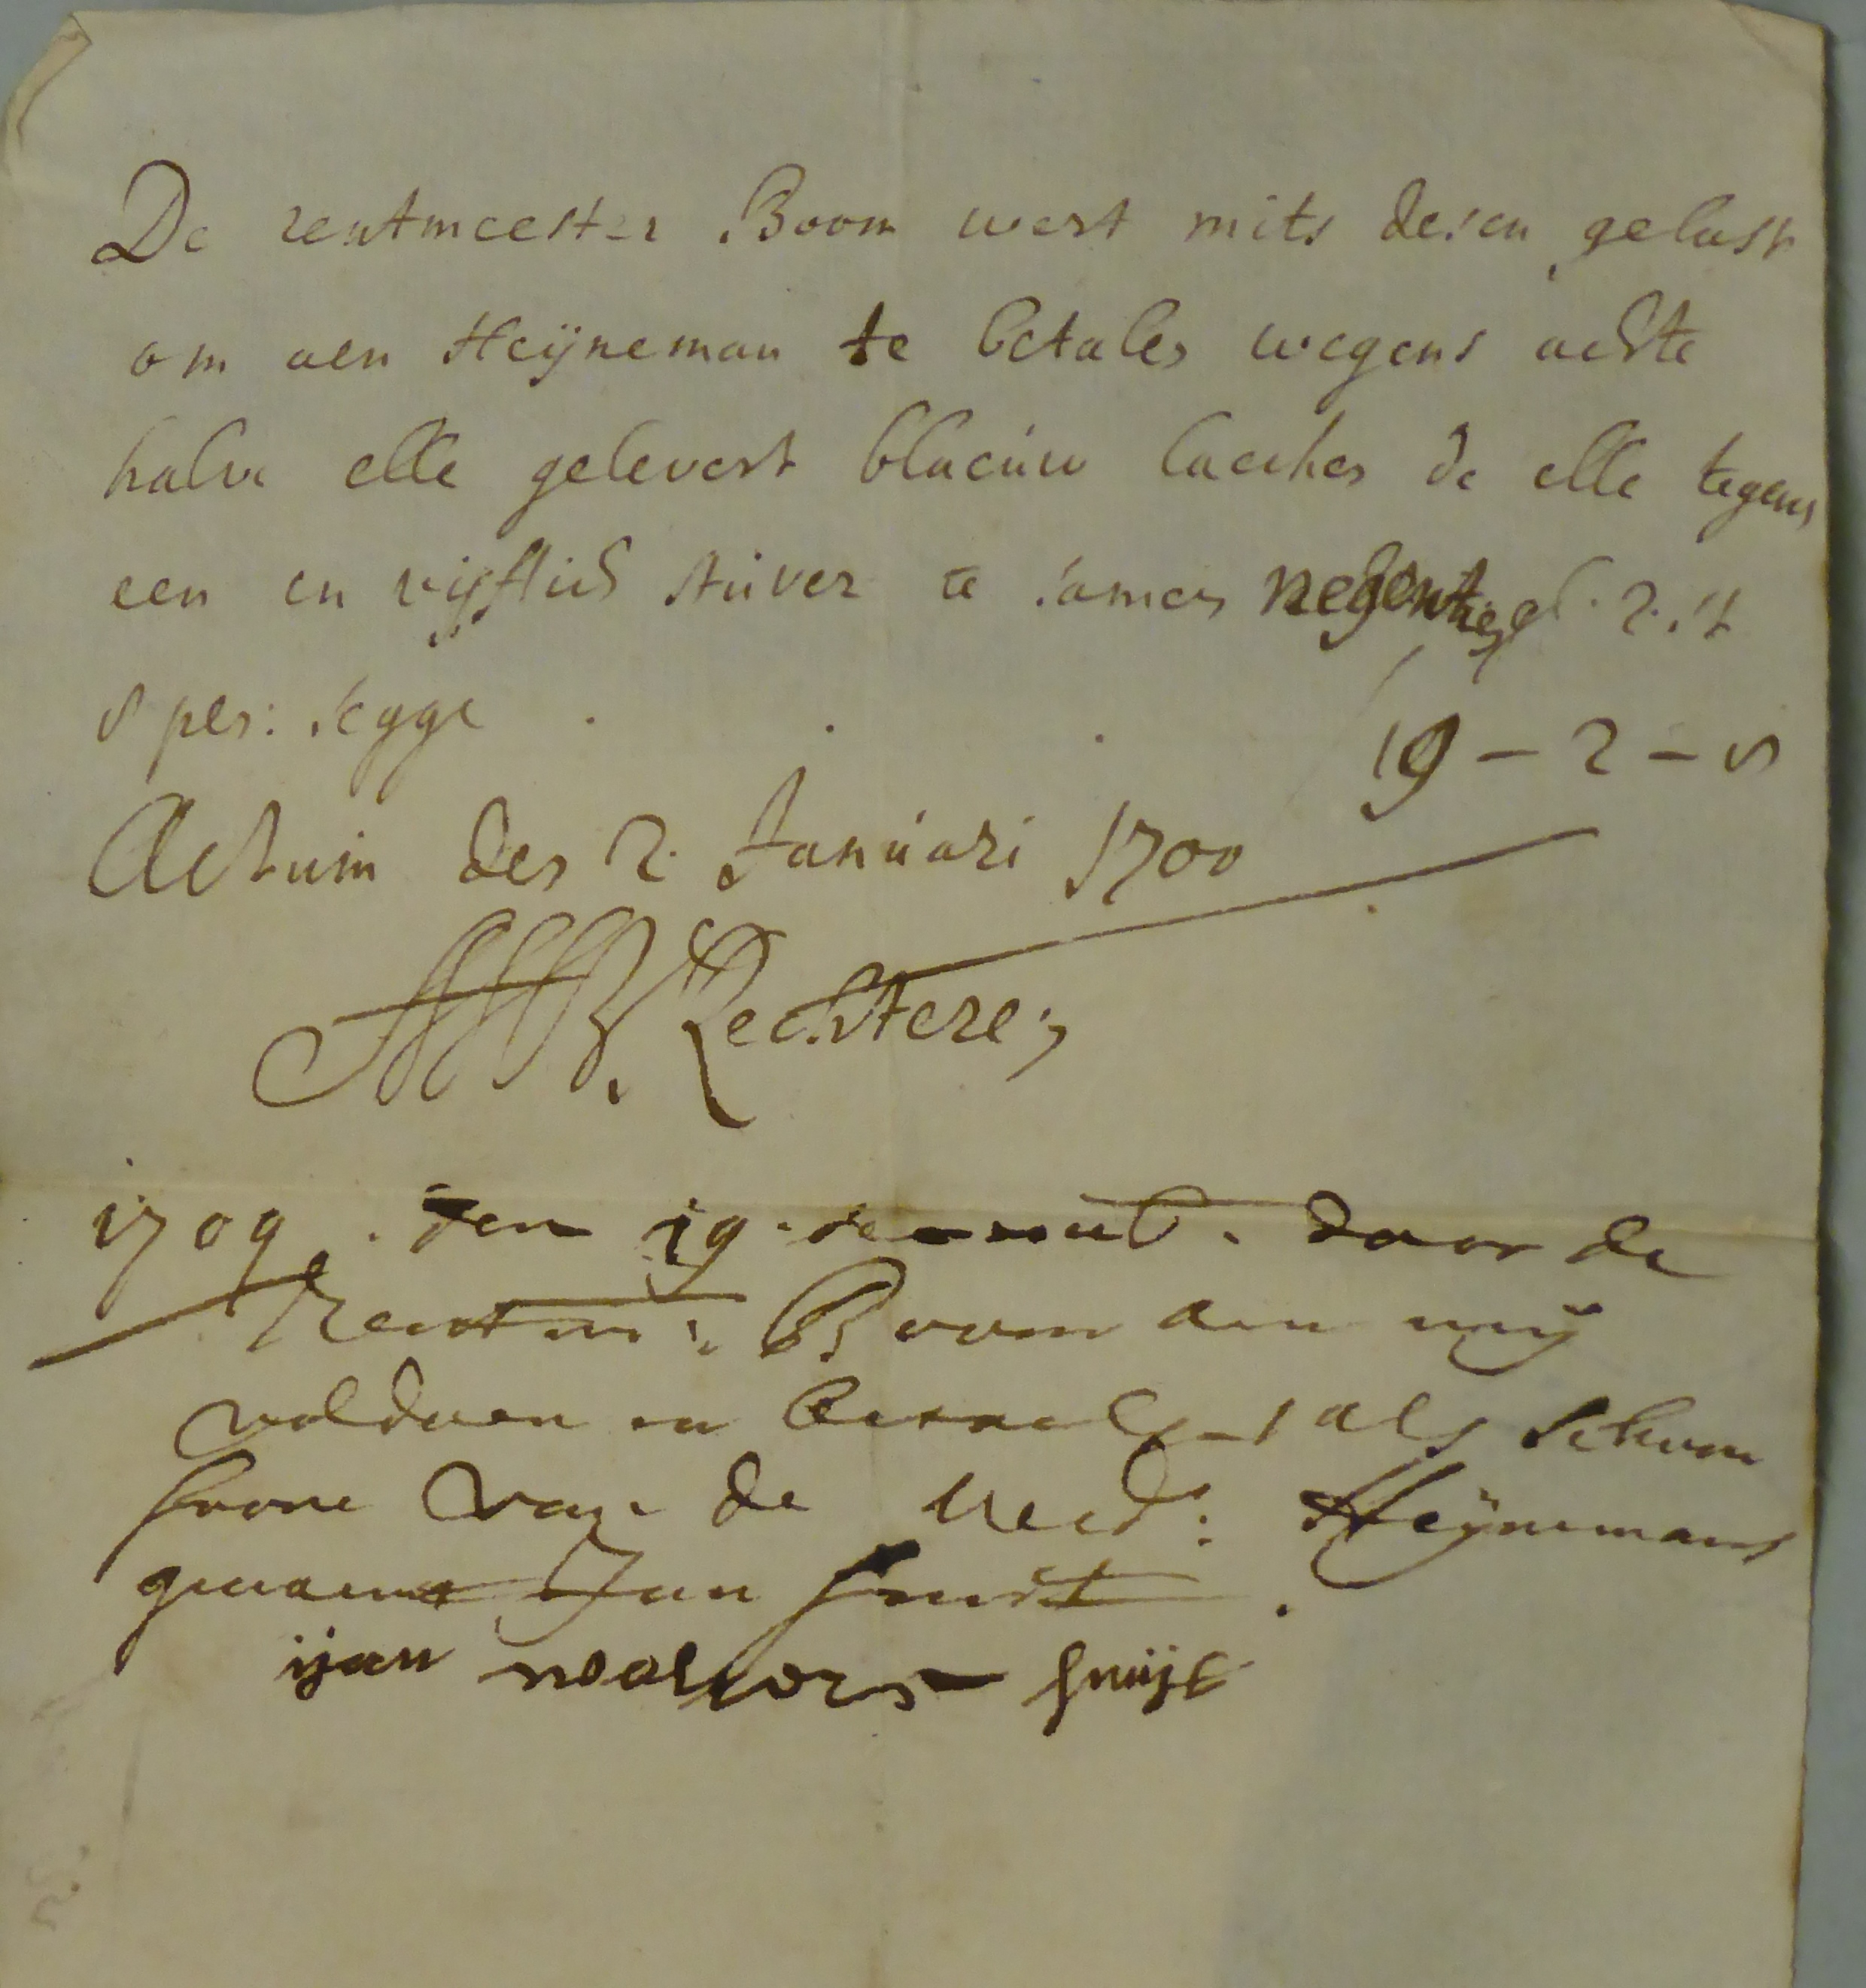 De rentmeester Boom wert mits desen gelast
om aen Heijneman te betalen wegens achte
halve elle gelevert blaeuw laeken de elle tegens
een en vijftich stuiver te samen negentien gl. 2. st
8 pen: segge . . .
19 - 2 - 8
Actum den 2. Januari 1700
Rechteren
1709. den 19 door de
Rentm: Boom aen mij
voldaen en betaelt als schoon
soone van de Weed: Heijnemans
genaemt Jan Smidt.
ijan wolters smijt